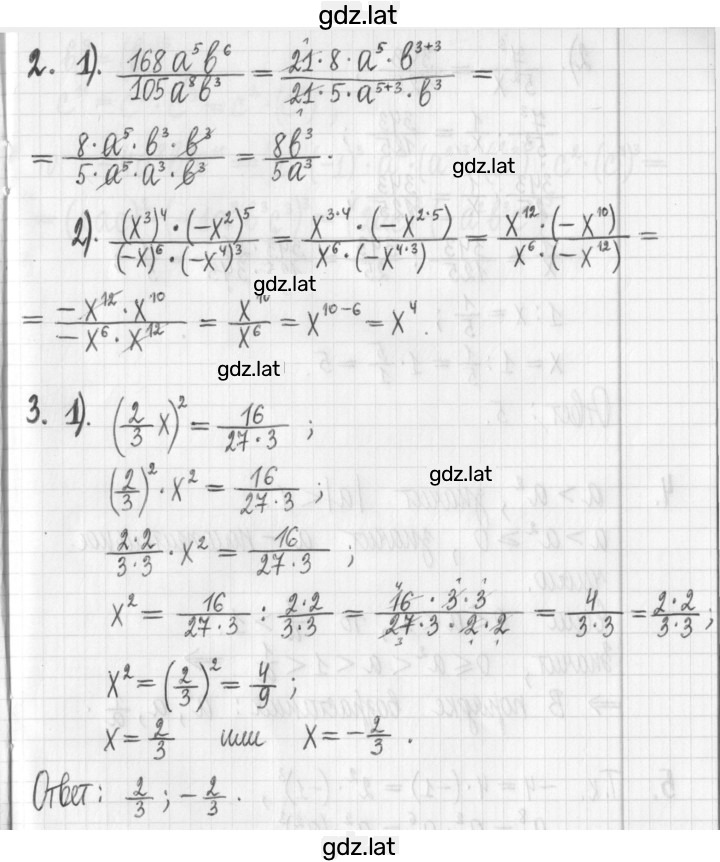 gdz.lat
2. 1). 168a⁵b⁶/105a⁸b³ = 21·8·a⁵·b³⁺³/21·5·a⁵⁺³·b³ =
= 8·a⁵·b³·b³/5·a⁵·a³·b³ = 8b³/5a³.
gdz.lat
2). (x³)⁴·(-x²)⁵/(-x)⁶·(-x⁴)³ = x³·⁴·(-x²·⁵)/x⁶·(-x⁴·³) = x¹²·(-x¹⁰)/x⁶·(-x¹²) =
gdz.lat
= -x¹²·x¹⁰/-x⁶·x¹² = x¹⁰/x⁶ = x¹⁰⁻⁶ = x⁴.
gdz.lat
3. 1). (2/3 x)² = 16/27·3 ;
gdz.lat
(2/3)²·x² = 16/27·3 ;
2·2/3·3·x² = 16/27·3 ;
x² = 16/27·3 : 2·2/3·3 = 16·3·3/27·3·2·2 = 4/3·3 = 2·2/3·3 ;
x² = (2/3)² = 4/9 ;
x = 2/3 или x = -2/3 .
Ответ: 2/3 ; -2/3 .
gdz.lat